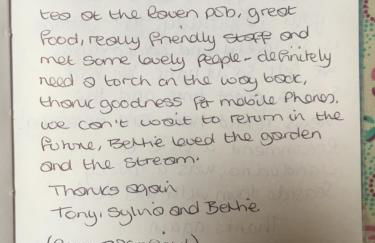 tea at the Raven pub, great
food, really friendly staff and
met some lovely people - definitely
need a torch on the way back,
thank goodness for mobile phones.
we can't wait to return in the
future, Bettie loved the garden
and the stream.
Thanks again
Tony, Sylvia and Bettie